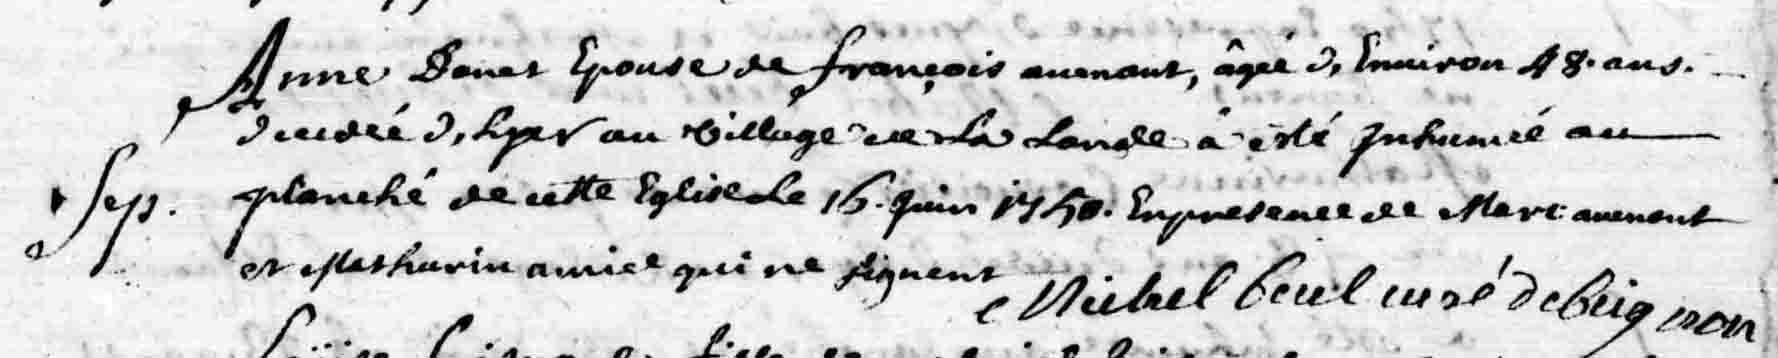 Anne Donet Epouse de françois auenant, âgée d, Enuiron 48. ans.
decedée d, hyer au Village de La Lande à été Inhumée au
Sep. planché de cette Eglise Le 16. Juin 1750. En presence de Marc auenant
et Mathurin amice qui ne signent
Michel beul curé de beignon